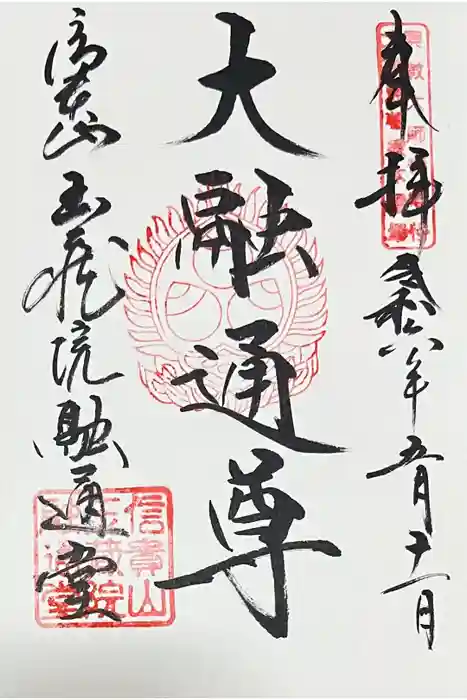 奉拝 令和六年五月十一日
大融通尊
信貴山 玉蔵院 融通堂
信貴山
玉蔵院
融通堂